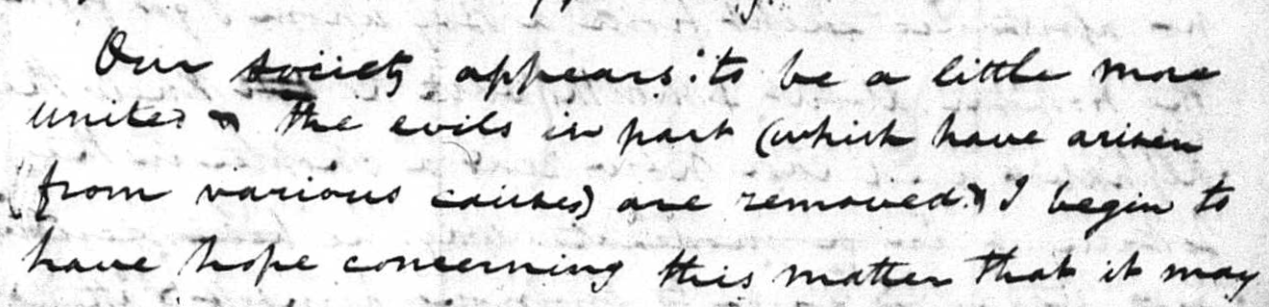 Our society appears to be a little more
united & the evils in part (which have arisen
from various causes) are removed & I begin to
have hope concerning this matter that it may